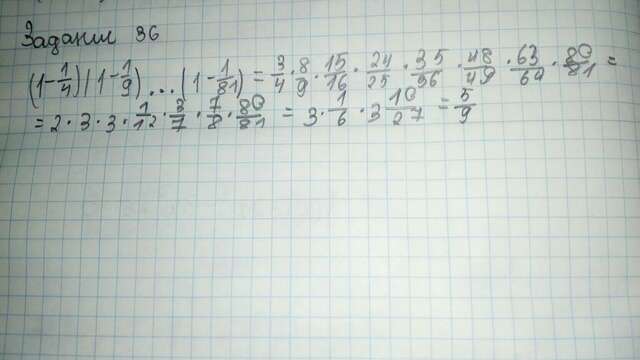 Задании 36
(1-1/4)(1-1/9)...(1-1/81)=3/4·8/9·15/16·24/25·35/36·48/49·63/64·80/81=
=2·3·3·1/12·3/7·7/8·80/81=3·1/6·3 10/27=5/9